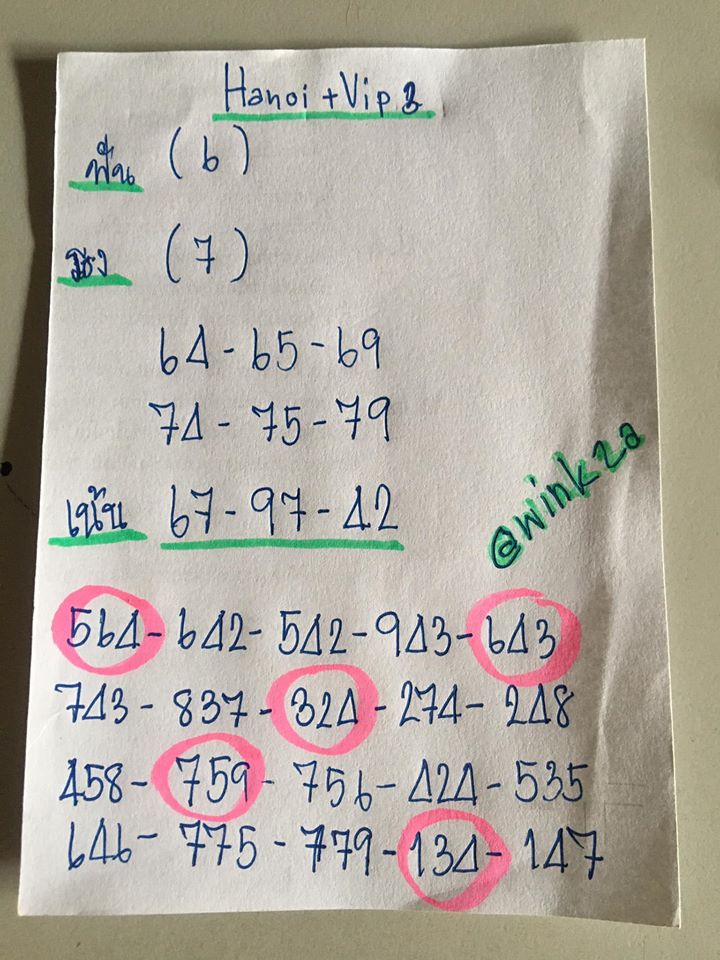 Hanoi + Vip 3
ฟัน (6)
(7)
64 - 65 - 69
74 - 75 - 79
เน้น 67 - 97 - 42
@wink2a
564 - 642 - 542 - 943 - 643
743 - 837 - 324 - 274 - 248
458 - 759 - 756 - 424 - 535
646 - 775 - 779 - 134 - 147